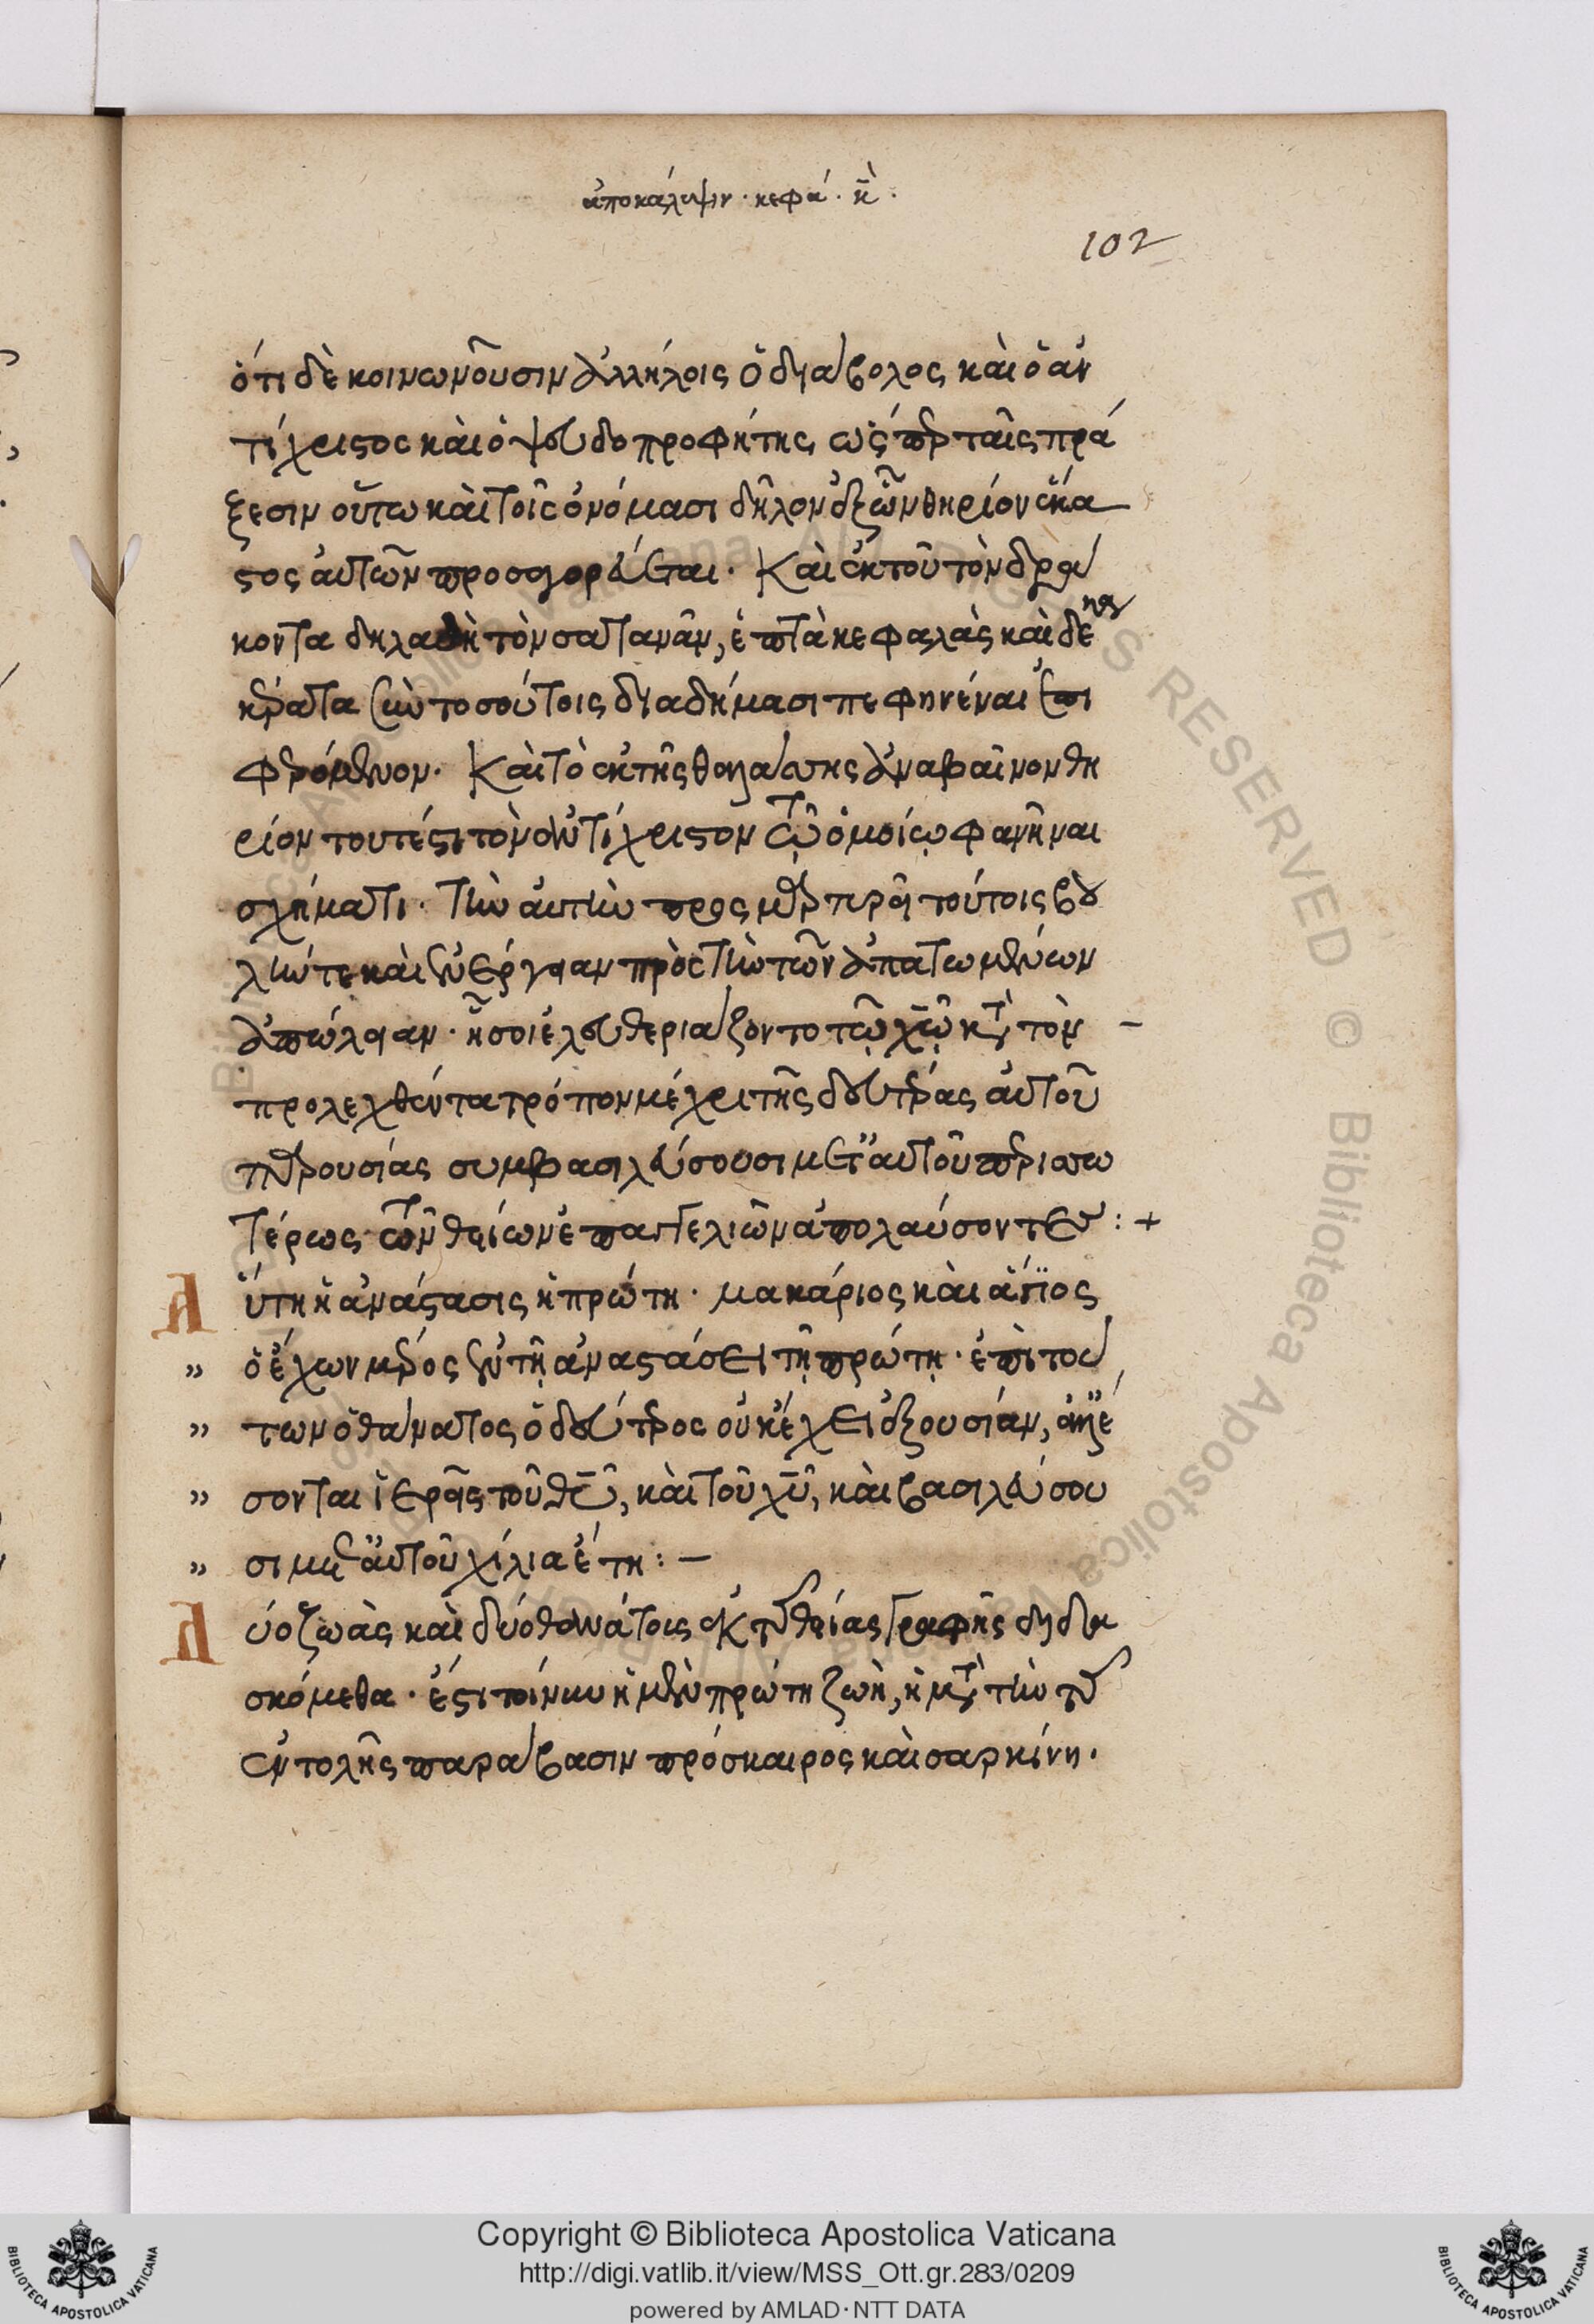 ἀποκάλυψιν · κεφά · κ̄ .
102
ὅτι δὲ κοινωνοῦσιν ἀλλήλοις ὁ διάβολος καὶ ὁ ἀν
τίχριστος καὶ ὁ ψευδοπροφήτης, ὥσπερ ταῖς πρά
ξεσιν οὕτω καὶ τοῖς ὀνόμασι δῆλον ἐξ ὧν θηρίον ἕκα
στος αὐτῶν προσαγορεύεται · Καὶ ἐκ τοῦ τὸν δρά
κοντα δηλαδὴ τὸν σατανᾶν, ἑπτὰ κεφαλὰς καὶ δέκα
κέρατα σὺν τοσούτοις διαδήμασι πεφηνέναι ἐπι
φερόμενον · Καὶ τὸ ἐκ τῆς θαλάσσης ἀναβαῖνον θη
ρίον τουτέστι τὸν ἀντίχριστον τῷ ὁμοίῳ φανῆναι
σχήματι · τὴν αὐτὴν πρὸς μὲν παρὰ τούτοις βου
λήν τε καὶ ἐνέργειαν πρὸς τὴν τῶν ἀπατωμένων
ἀπώλειαν · ἧς οἱ ἐλευθεριάζοντο τῷ χῶ κατὰ τὸν –
προλεχθέντα τρόπον μέχρι τῆς δευτέρας αὐτοῦ
παρουσίας συμβασιλεύσουσι μετ' αὐτοῦ περισσο
τέρως τῶν θείων ἐπαγγελιῶν ἀπολαύσοντες : +
Αὕτη ἡ ἀνάστασις ἡ πρώτη · μακάριος καὶ ἅγιος
" ὁ ἔχων μέρος ἐν τῇ ἀναστάσει τῇ πρώτῃ · ἐπὶ τού
" των ὁ θάνατος ὁ δεύτερος οὐκ ἔχει ἐξουσίαν, ἀλλ' ἔ
" σονται ἱερεῖς τοῦ θυ, καὶ τοῦ χυ, καὶ βασιλεύσου
" σι μετ' αὐτοῦ χίλια ἔτη : –
Δύο ζωὰς καὶ δύο θανάτοις ἐκ τῆς θείας Γραφῆς διδα
σκόμεθα · ἔστι τοίνυν ἡ μὲν πρώτη ζωὴ, ἡ μετὰ τὴν τῆς
ἐντολῆς παράβασιν πρόσκαιρος καὶ σαρκίνη ·
Copyright © Biblioteca Apostolica Vaticana
http://digi.vatlib.it/view/MSS_Ott.gr.283/0209
powered by AMLAD·NTT DATA